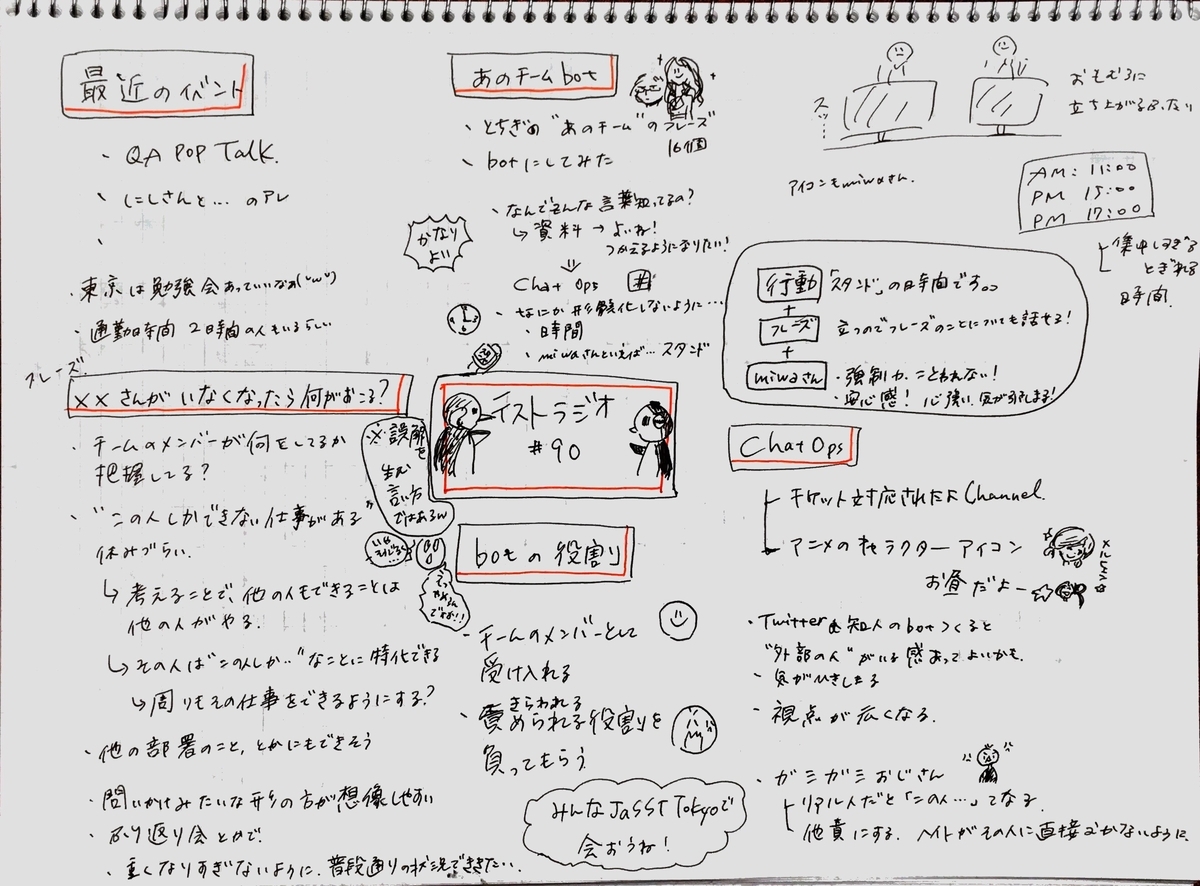 最近のイベント
・QA POP Talk.
・にしさんと… のアレ
・
・東京は勉強会あっていいなぁ("ω")
・通勤時間 2時間の人もいるらしい
フレーズ
××さんがいなくなったら何がおこる?
・チームのメンバーが何をしてるか
把握してる?
・"この人しかできない仕事がある"
休みづらい.
↳ 考えることで、他の人もできることは
他の人がやる.
↳ その人は"この人しか…"なことに特化できる
↳ 周りもその仕事をできるようにする?
・他の部署のこと、とかにもできそう
・問いかけみたいな形の方が想像しやすい
・ふり返り会とかで.
・重くなりすぎないように、普段通りの状況でききたい.
※誤解を
生む
言い方
ではあるw
えっ
やめるん
ですか!!
あのチームbot
・とちぎの"あのチーム"のフレーズ
16個
・botにしてみた
・なんでそんな言葉知ってるの?
↳ 資料 → よいね!
つかえるようになりたい!
かなり
よい
⇓
Chat Ops #
・なにか形骸化しないように…
・時間
・miwaさんといえば… スタンド
テストラジオ
#90
botの役割
・チームのメンバーとして
受け入れる
・きらわれる
責められる役割を
負ってもらう
みんなJaSST Tokyoで
会おうね!
スッ…
おもむろに
立ち上がるふたり
アイコンもmiwaさん.
AM: 11:00
PM 15:00
PM 17:00
集中しすぎる
とぎれる
時間.
行動 「スタンド」の時間です。
+
フレーズ 立つのでフレーズのことについても話せる!
+
miwaさん ・強制力、こともれない!
・安心感! 心強い、気が引きしまる!
ChatOps
チケット対応されたよChannel.
アニメのキャラクターアイコン
お昼だよー
・Twitterの知人のbotつくると
"外部の人"がいる感あってよいかも.
・気がひきしまる
・視点が広くなる.
・ガミガミおじさん
リアル人だと「この人…」てなる.
他責にする. ヘイトがその人に直接むかないように